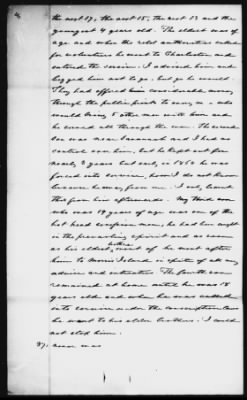 the next 17, the next 15, the next 13 and the
youngest 4 years old. The eldest was of
age and when the rebel authorities called
for volunteers he went to Charleston and
entered the service. I advised him and
begged him not to go, but go he would.
They had offered him considerable money,
through the public prints to any man who
would bring 5 other men with him and
he served all through the war. The second
son was near Savannah and I had no
control over him, but he kept out for
nearly 3 years but early in 1864 he was
forced into service, how I do not know
because he was from me. I only learnt
that from him afterwards. My third son
who was 17 years of age was one of the
hot head conform men, he had been caught
in the prevailing spirit and as soon
as his eldest brother went off he went after
him to Morris Island in spite of all my
advice and entreaties. The fourth son
remained at home until he was 18
years old and when he was called
into service under the conscription laws
he went to his elder brothers. I could
not stop him.
37, never was